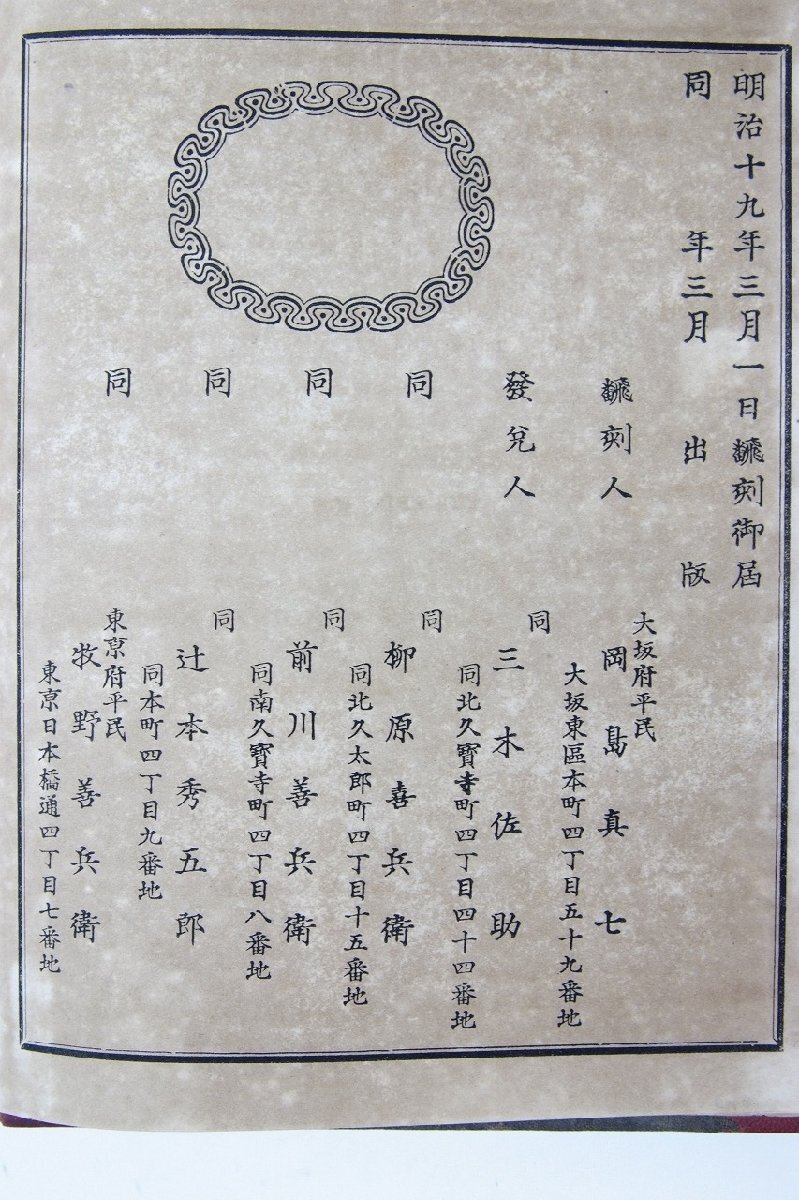 明治十九年三月一日飜刻御届
同年三月出版
飜刻人
大坂府平民
岡島真七
大坂東區本町四丁目五十九番地
發兌人
同
三木佐助
同北久寶寺町四丁目四十四番地
同
同
柳原喜兵衛
同北久太郎町四丁目十五番地
同
同
前川善兵衛
同南久寶寺町四丁目八番地
同
同
辻本秀五郎
同本町四丁目九番地
同
東京府平民
牧野善兵衛
東京日本橋通四丁目七番地